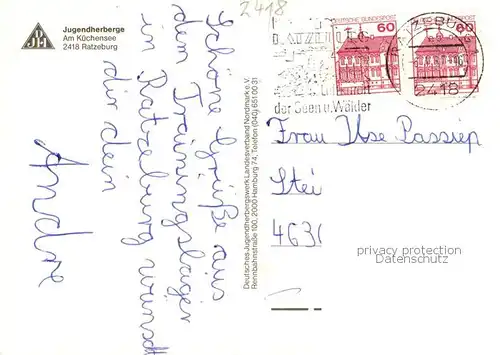 2418
Jugendherberge
Am Küchensee
2418 Ratzeburg
DJH
Schöne Grüße aus
dem Trainingslager
in Ratzeburg wünscht
dir dein
Andre
Deutsches Jugendherbergswerk Landesverband Nordmark e.V.
Rennbahnstraße 100, 2000 Hamburg 74, Telefon (040) 651 00 31
DEUTSCHE BUNDESPOST
60
60
2418
der Seen u. Wälder
Frau Ilse
4630
privacy protection
Datenschutz